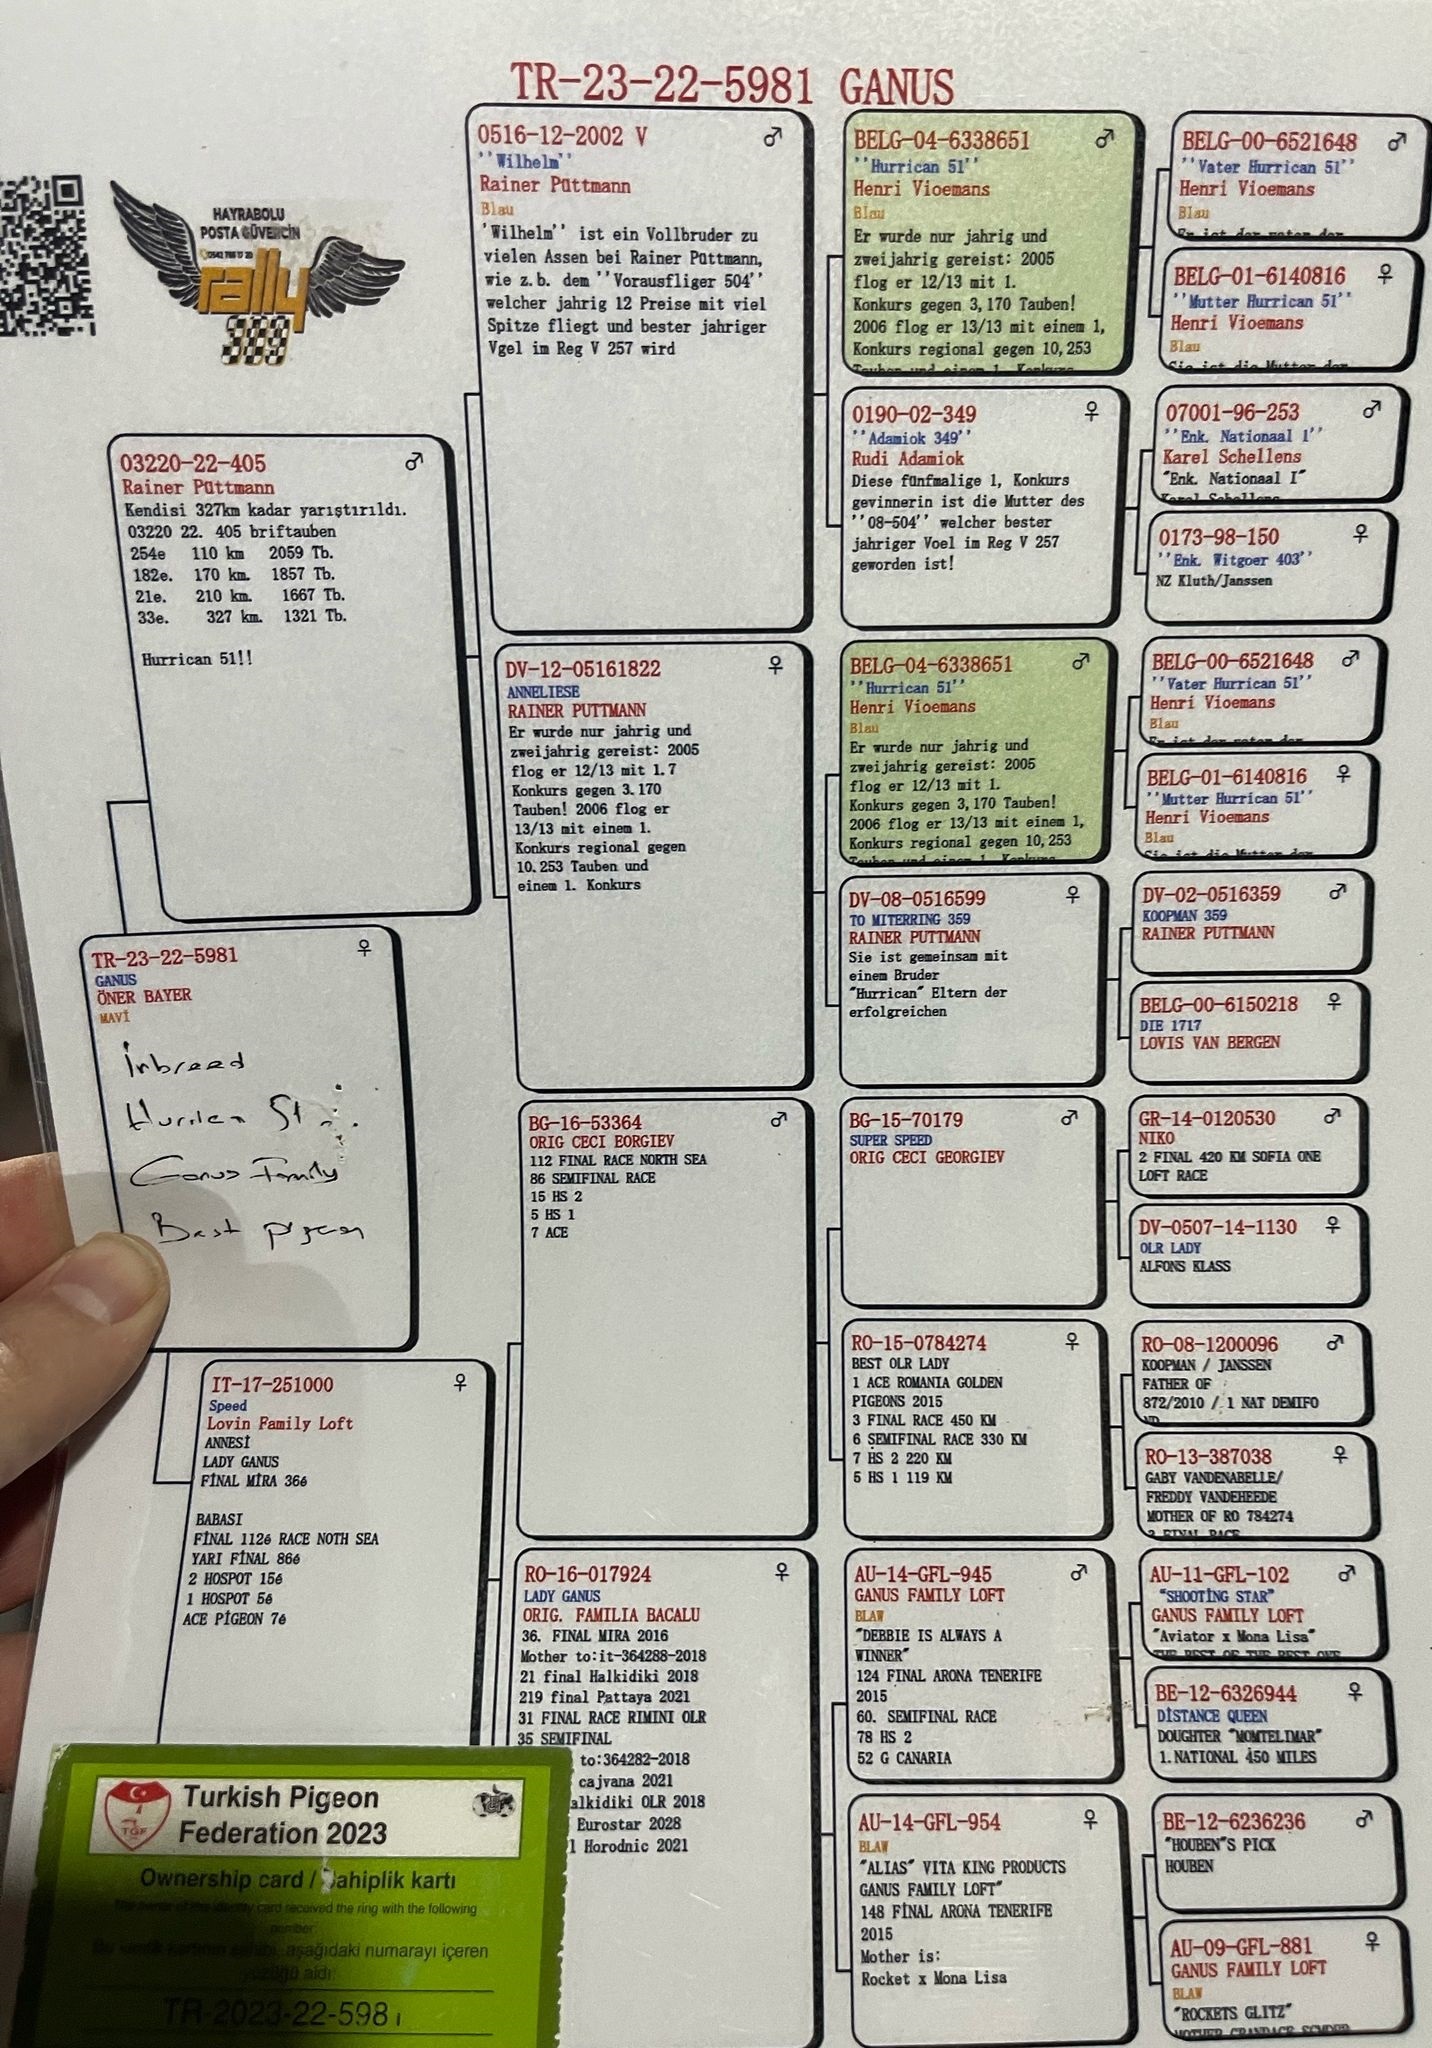 TR-23-22-5981 GANUS
HAYRABOLU
POSTA GÜVERCİN
rally
309
TR-23-22-5981 ♀
GANUS
ÖNER BAYER
MAVİ
İnbreed
Ganus Family
Best pigeon
03220-22-405 ♂
Rainer Püttmann
Kendisi 327km kadar yarıştırıldı.
03220 22. 405 briftauben
254e 110 km 2059 Tb.
182e. 170 km. 1857 Tb.
21e. 210 km. 1667 Tb.
33e. 327 km. 1321 Tb.
Hurrican 51!!
IT-17-251000 ♀
Speed
Lovin Family Loft
ANNESİ
LADY GANUS
FİNAL MİRA 36é
BABASI
FİNAL 112é RACE NOTH SEA
YARI FİNAL 86é
2 HOSPOT 15é
1 HOSPOT 5é
ACE PİGEON 7é
0516-12-2002 V ♂
''Wilhelm''
Rainer Püttmann
Blau
'Wilhelm'' ist ein Vollbruder zu
vielen Assen bei Rainer Püttmann,
wie z.b. dem ''Vorausfliger 504''
welcher jahrig 12 Preise mit viel
Spitze fliegt und bester jahriger
Vgel im Reg V 257 wird
DV-12-05161822 ♀
ANNELIESE
RAINER PUTTMANN
Er wurde nur jahrig und
zweijahrig gereist: 2005
flog er 12/13 mit 1.7
Konkurs gegen 3.170
Tauben! 2006 flog er
13/13 mit einem 1.
Konkurs regional gegen
10.253 Tauben und
einem 1. Konkurs
BG-16-53364 ♂
ORIG CECI EORGIEV
112 FINAL RACE NORTH SEA
86 SEMIFINAL RACE
15 HS 2
5 HS 1
7 ACE
RO-16-017924 ♀
LADY GANUS
ORIG. FAMILIA BACALU
36. FINAL MIRA 2016
Mother to:it-364288-2018
21 final Halkidiki 2018
219 final Pattaya 2021
31 FINAL RACE RIMINI OLR
35 SEMIFINAL
to:364282-2018
cajvana 2021
alkidiki OLR 2018
Eurostar 2028
l Horodnic 2021
BELG-04-6338651 ♂
''Hurrican 51''
Henri Vioemans
Blau
Er wurde nur jahrig und
zweijahrig gereist: 2005
flog er 12/13 mit 1.
Konkurs gegen 3,170 Tauben!
2006 flog er 13/13 mit einem 1,
Konkurs regional gegen 10,253
Tauben und einem 1. Konkurs
0190-02-349 ♀
''Adamiok 349''
Rudi Adamiok
Diese fünfmalige 1, Konkurs
gevinnerin ist die Mutter des
''08-504'' welcher bester
jahriger Voel im Reg V 257
geworden ist!
BELG-04-6338651 ♂
''Hurrican 51''
Henri Vioemans
Blau
Er wurde nur jahrig und
zweijahrig gereist: 2005
flog er 12/13 mit 1.
Konkurs gegen 3,170 Tauben!
2006 flog er 13/13 mit einem 1,
Konkurs regional gegen 10,253
Tauben und einem 1. Konkurs
DV-08-0516599 ♀
TO MITERRING 359
RAINER PUTTMANN
Sie ist gemeinsam mit
einem Bruder
"Hurrican" Eltern der
erfolgreichen
BG-15-70179 ♂
SUPER SPEED
ORIG CECI GEORGIEV
RO-15-0784274 ♀
BEST OLR LADY
1 ACE ROMANIA GOLDEN
PIGEONS 2015
3 FINAL RACE 450 KM
6 SEMIFINAL RACE 330 KM
7 HS 2 220 KM
5 HS 1 119 KM
AU-14-GFL-945 ♂
GANUS FAMILY LOFT
BLAW
"DEBBIE IS ALWAYS A
WINNER"
124 FINAL ARONA TENERIFE
2015
60. SEMIFINAL RACE
78 HS 2
52 G CANARIA
AU-14-GFL-954 ♀
BLAW
"ALIAS" VITA KING PRODUCTS
GANUS FAMILY LOFT"
148 FİNAL ARONA TENERIFE
2015
Mother is:
Rocket x Mona Lisa
BELG-00-6521648 ♂
''Vater Hurrican 51''
Henri Vioemans
Blau
Er ist der vater der
BELG-01-6140816 ♀
''Mutter Hurrican 51''
Henri Vioemans
Blau
Sie ist die Mutter der
07001-96-253 ♂
''Enk. Nationaal 1''
Karel Schellens
"Enk. Nationaal I"
Karel Schellens
0173-98-150 ♀
''Enk. Witgoer 403''
NZ Kluth/Janssen
BELG-00-6521648 ♂
''Vater Hurrican 51''
Henri Vioemans
Blau
Er ist der vater der
BELG-01-6140816 ♀
''Mutter Hurrican 51''
Henri Vioemans
Blau
Sie ist die Mutter der
DV-02-0516359 ♂
KOOPMAN 359
RAINER PUTTMANN
BELG-00-6150218 ♀
DIE 1717
LOVIS VAN BERGEN
GR-14-0120530 ♂
NIKO
2 FINAL 420 KM SOFIA ONE
LOFT RACE
DV-0507-14-1130 ♀
OLR LADY
ALFONS KLASS
RO-08-1200096 ♂
KOOPMAN / JANSSEN
FATHER OF
872/2010 / 1 NAT DEMIFO
ND
RO-13-387038 ♀
GABY VANDENABELLE/
FREDDY VANDEHEEDE
MOTHER OF RO 784274
3 FINAL RACE
AU-11-GFL-102 ♂
"SHOOTİNG STAR"
GANUS FAMILY LOFT
"Aviator x Mona Lisa"
THE BEST OF THE BEST ONE
BE-12-6326944 ♀
DİSTANCE QUEEN
DOUGHTER "MOMTELIMAR"
1.NATIONAL 450 MILES
BE-12-6236236 ♂
"HOUBEN"S PICK
HOUBEN
AU-09-GFL-881 ♀
GANUS FAMILY LOFT
BLAW
"ROCKETS GLITZ"
MOTHER
Turkish Pigeon
Federation 2023
TGF
Ownership card / ahiplik kartı
The owner of the identity card received the ring with the following
number
Bu kimlik kartının sahibi, aşağıdaki numarayı içeren
yüzüğü aldı
TR-2023-22-5981